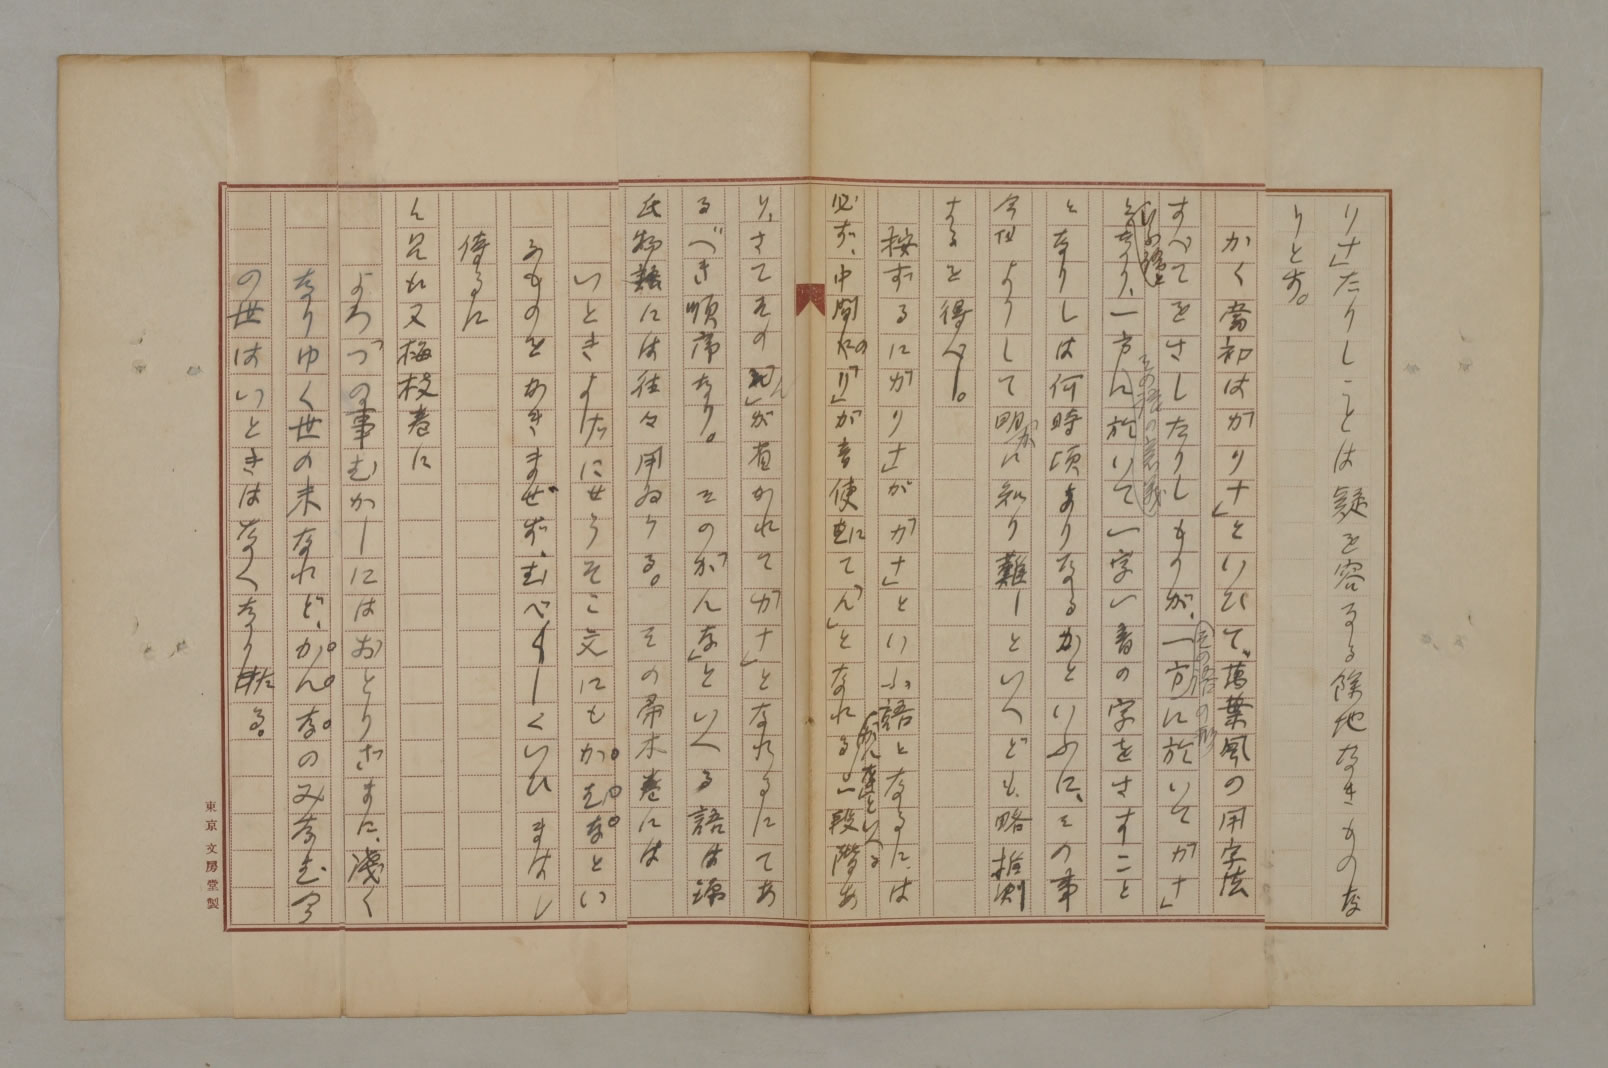 りナ」たりしことは疑を容るゝ餘地なきものな
りとす。
かく當初はかりナ」といひて、萬葉風の用字法
すべてをさしたりしものが、一方に於いてかナ」
その語の形
となり、一方に於いて一字一音の字をさすこと
その語の意義
となりしは何時頃よりなるかといふに、その事
今日よりして明かに知り難しといへども、略推測
するを得べし。
按ずるにかりナ」がかナ」といふ語となるには
必ず、中間のり」が音便にてん」となれる
かんな」といへる
一段階あ
り、さてそのん」が省かれてかナ」となれるにてあ
るべき順序なり。そのかんな」といへる語は源
氏物語には往々用ゐらる。その帚木卷には
いときよげにせうそこ文にもかむなとい
ふものをかきまぜず、むべ〳〵しくいひまはし
侍るに
と見え又梅枝卷に
よろづの事むかしにはおとりざまに、淺く
なりゆく世の末なれど、かんなのみなむ今
の世はいときはなくなりたる。
東京 文房堂製